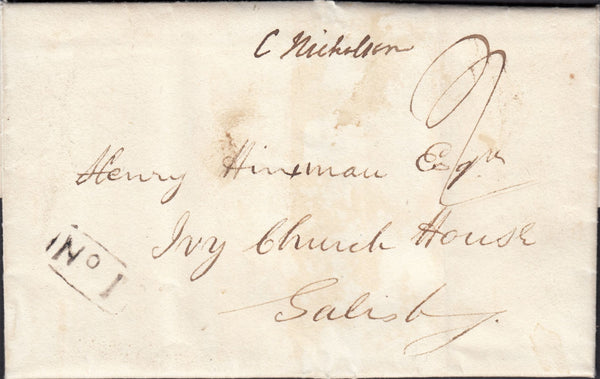 C Nicholson
2
Henry Hinxman Esqr
Ivy Church House
No 1
Salisby